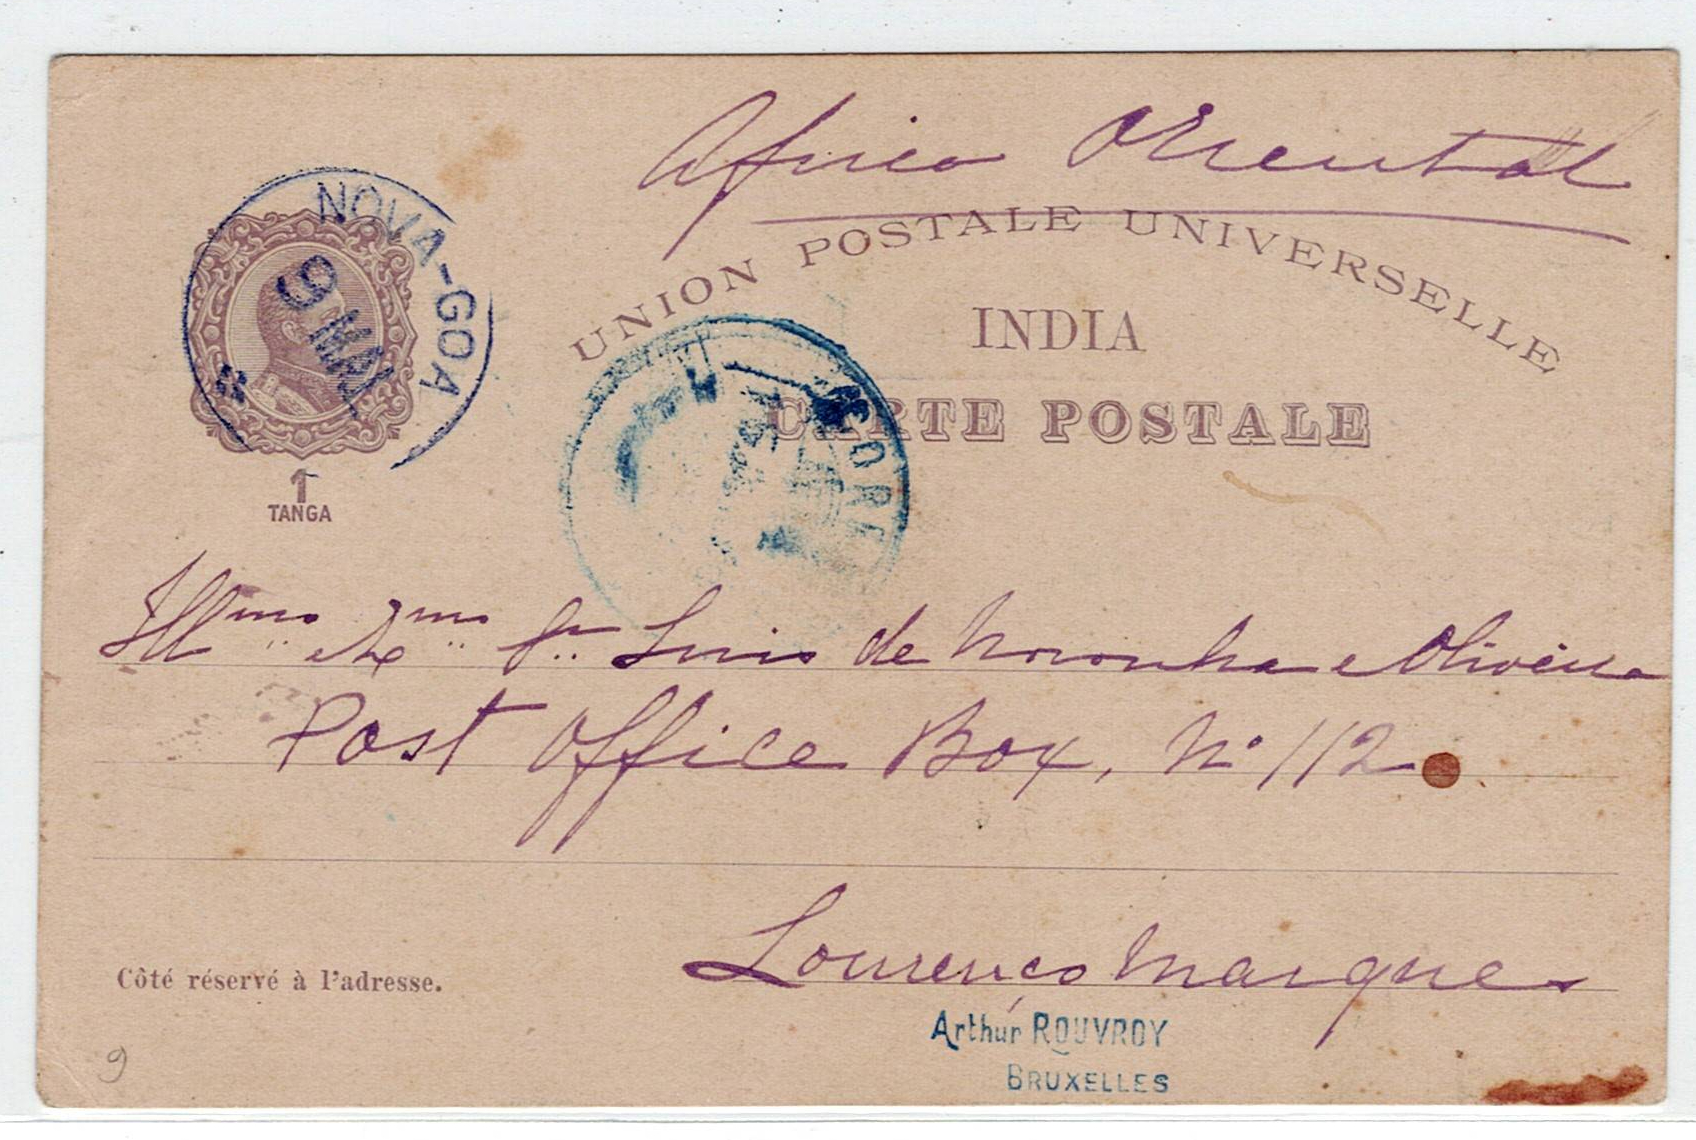 Africa Oriental
UNION POSTALE UNIVERSELLE
INDIA
CARTE POSTALE
NOVA-GOA
9 MAR
1
TANGA
CORR
Illmo Exmo Sr Luis de Noronha e Oliveira
Post Office Box, No 112
Lourenço Marques
Côté réservé à l'adresse.
Arthur ROUVROY
BRUXELLES
9